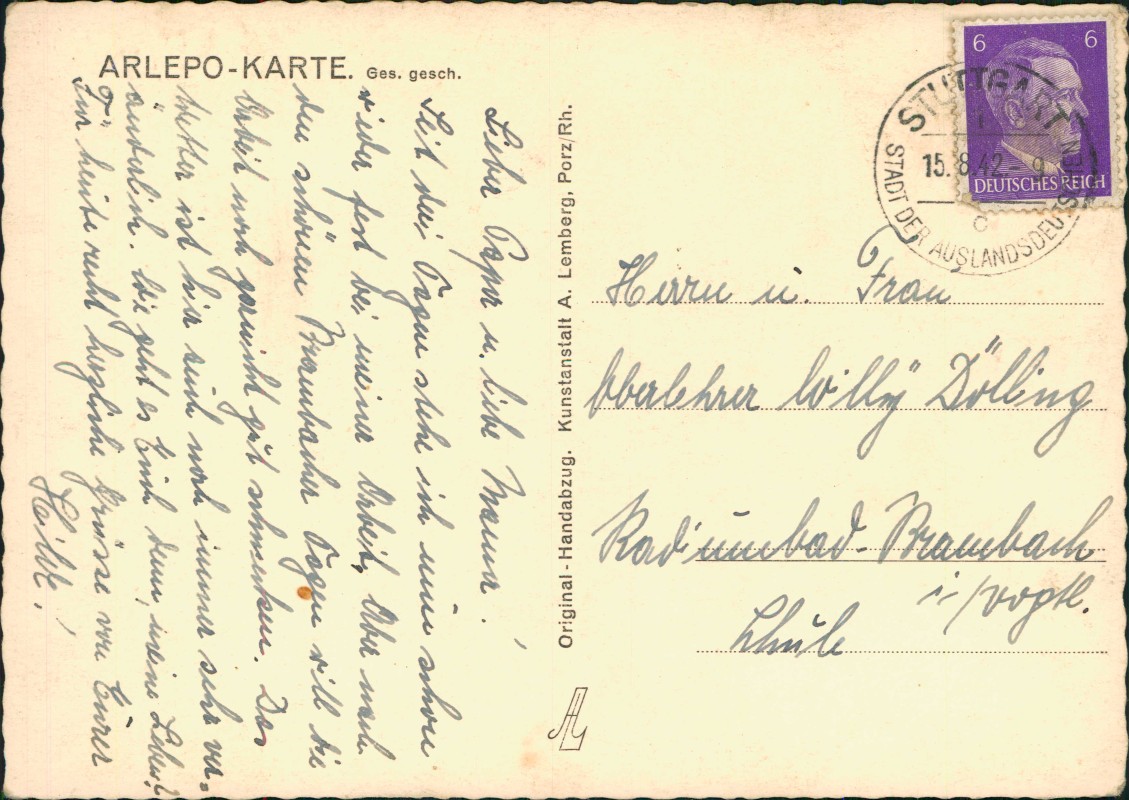 ARLEPO-KARTE. Ges. gesch.
Lieber Papa u. liebe Mama!
Seit drei Tagen stehe ich nun schon
wieder fest bei meiner Arbeit, Aber nach
den schönen Brambacher Tagen will die
Arbeit noch garnicht gut schmecken. Das
Wetter ist hier auch noch immer sehr ver-
änderlich. Wie geht es Euch denn, meine Lieben?
Für heute recht herzliche Grüsse von Eurer
Hilde.
Original-Handabzug. Kunstanstalt A. Lemberg, Porz/Rh.
6 6
DEUTSCHES REICH
STUTTGART
1
15.8.42. 9
c
STADT DER AUSLANDSDEUTSCHEN
Herrn u. Frau
Oberlehrer Willy Dölling
Radiumbad-Brambach
i/Vogtl.
Schule